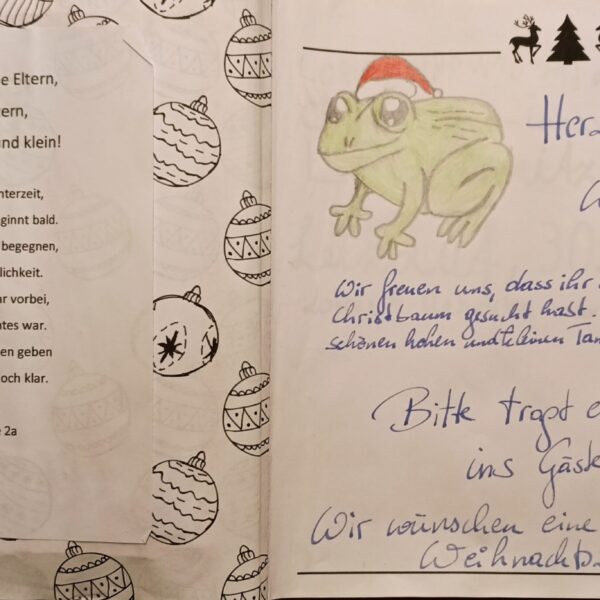 e Eltern,
ern,
und klein!
nterzeit,
ginnt bald.
begegnen,
lichkeit.
ar vorbei,
tes war.
en geben
och klar.
2a
Herz
Wir freuen uns, dass ihr
Christbaum gesucht hast.
schönen hohen und kleinen Tan
Bitte tragt e
ins Gäste
Wir wünschen eine
Weihnachts